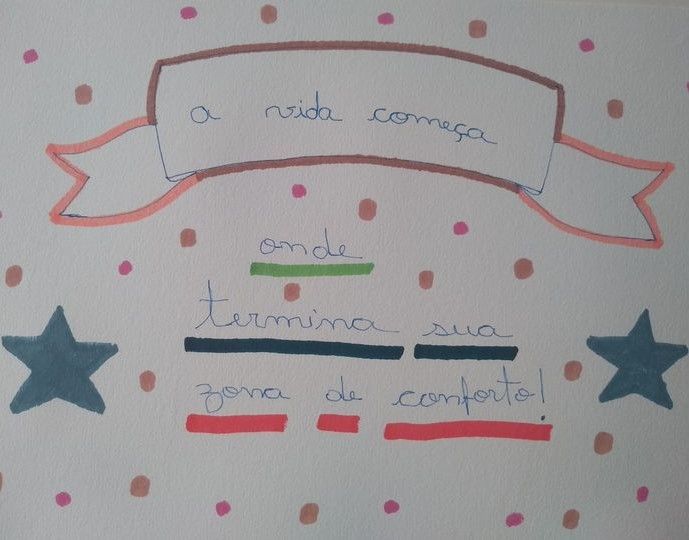 a vida começa
onde
termina sua
zona de conforto!